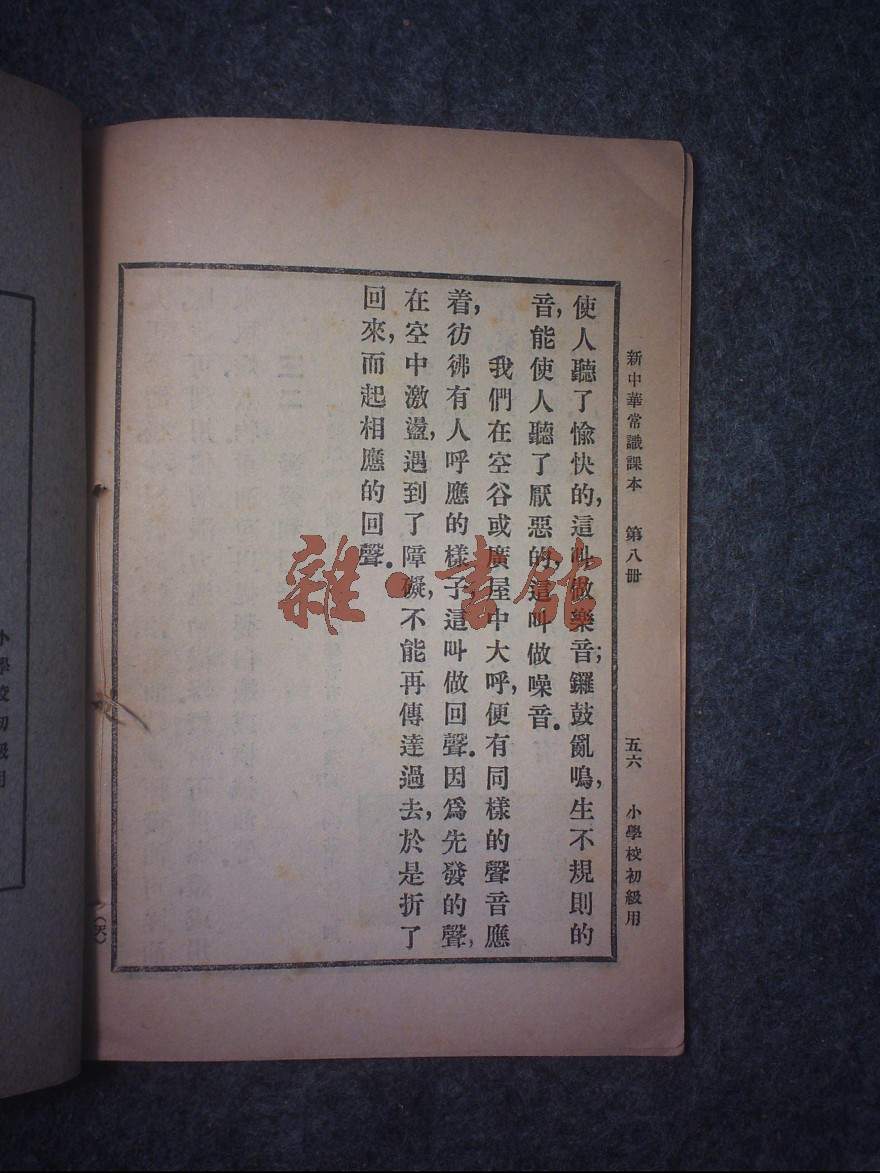 新中華常識課本 第八冊 五六 小學校初級用
使人聽了愉快的,這叫做樂音;鑼鼓亂鳴,生不規則的
音,能使人聽了厭惡的,這叫做噪音。
我們在空谷或廣屋中大呼,便有同樣的聲音應
着,彷彿有人呼應的樣子,這叫做回聲。因爲先發的聲,
在空中激盪,遇到了障礙,不能再傳達過去,於是折了
回來,而起相應的回聲。
雜·書館
小學校初級用